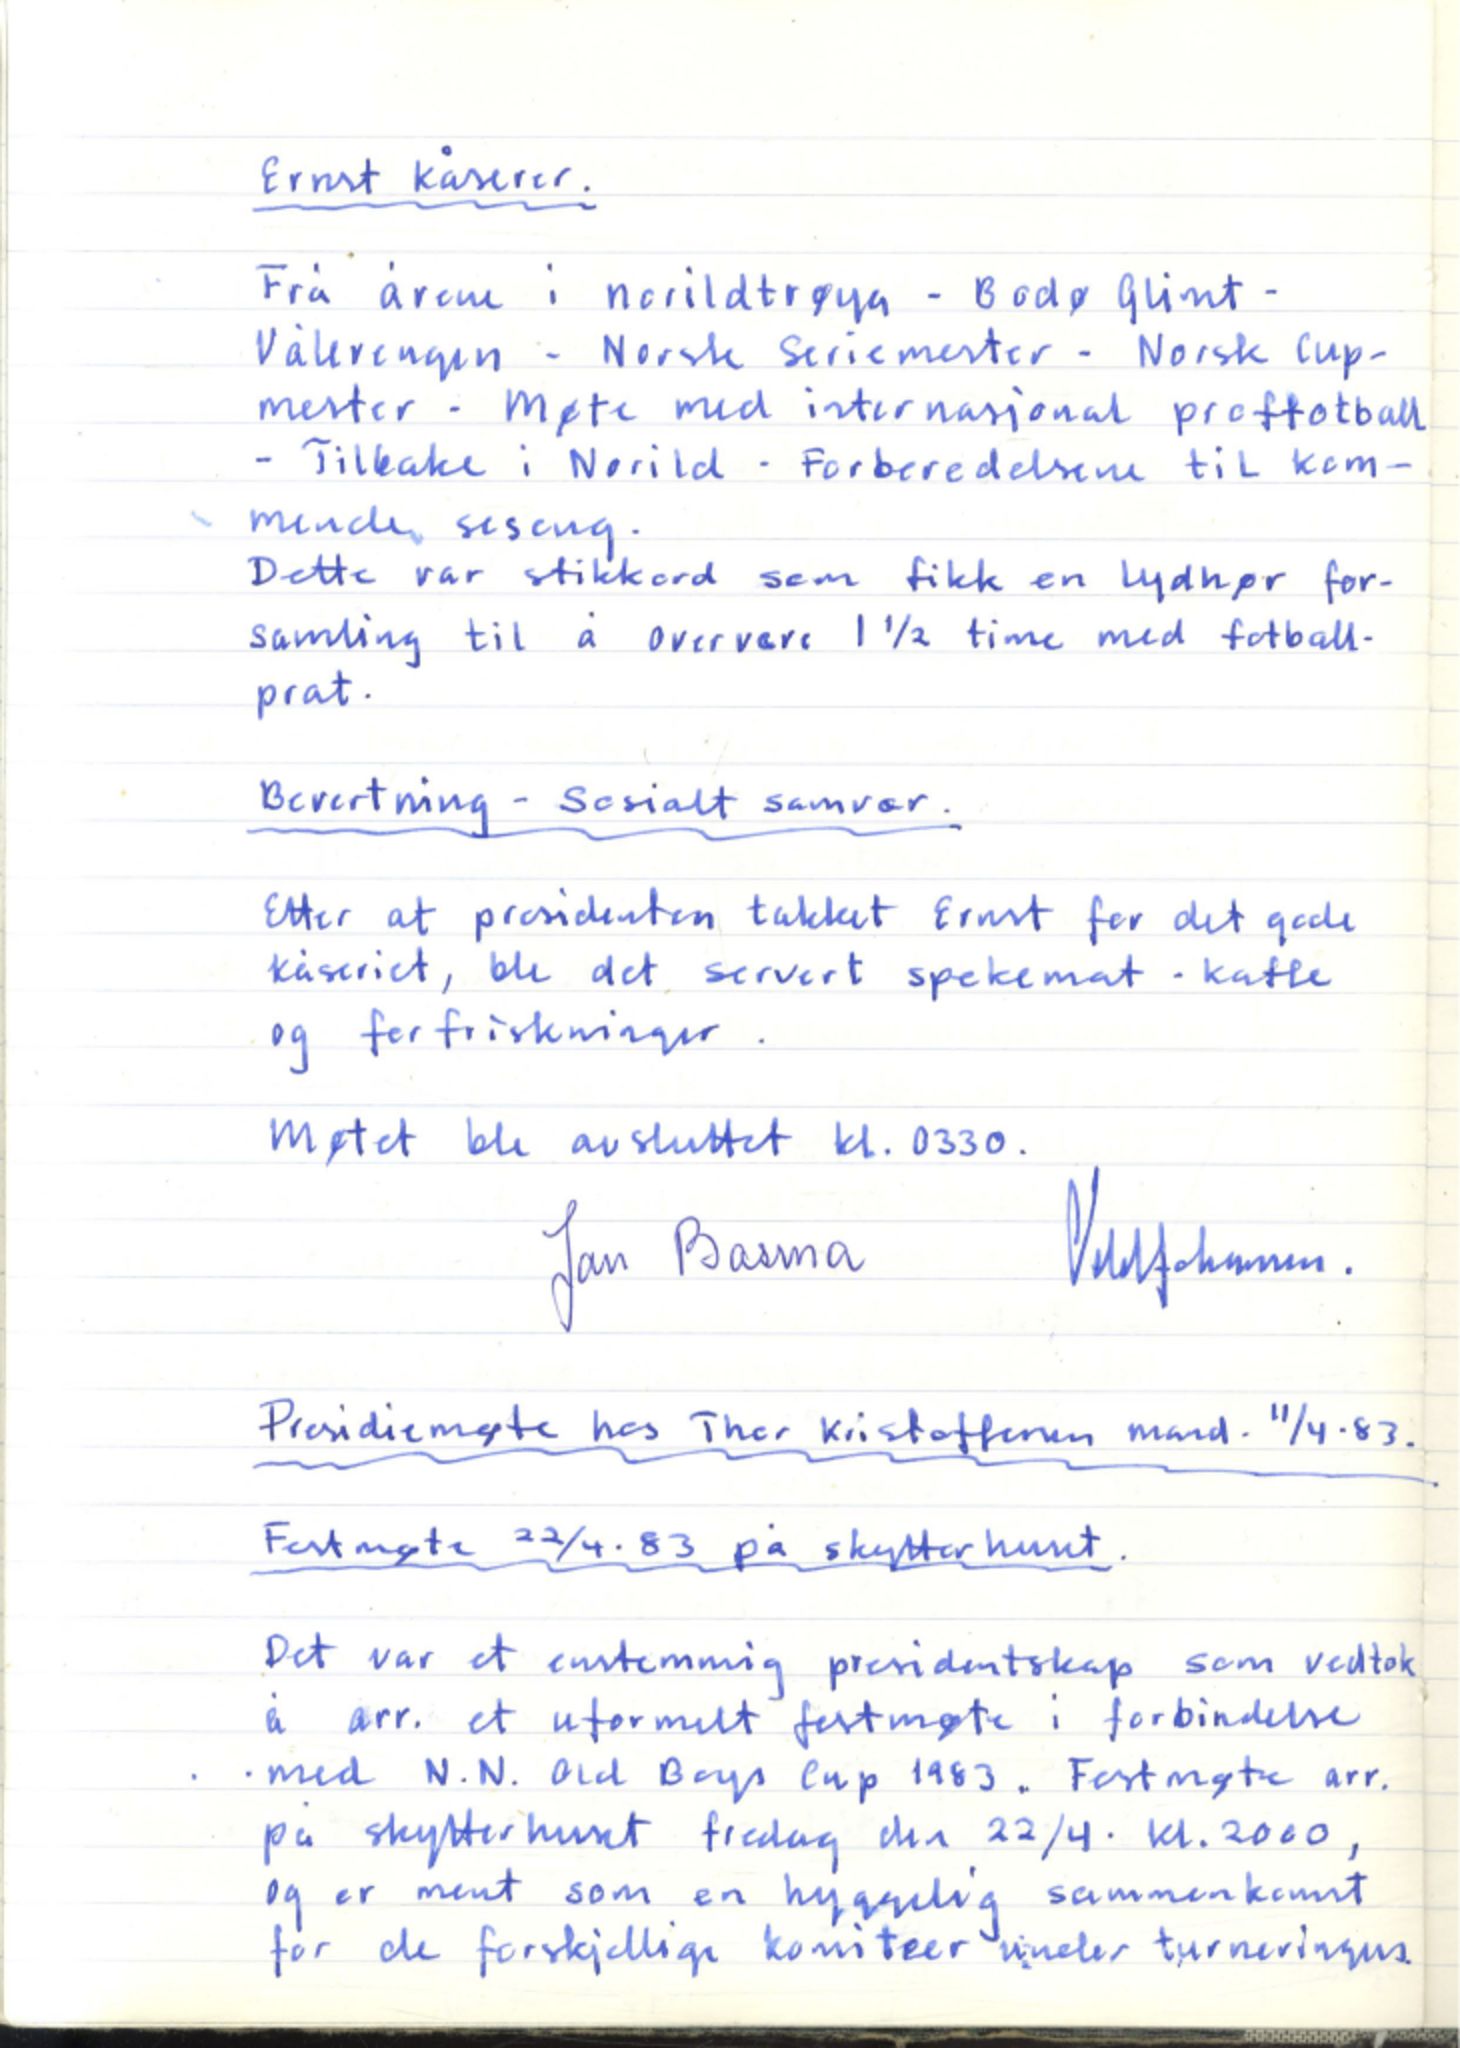 Ernst kåserer.
Frå årene i norildtrøya - Bodø Glimt -
Vålerengen - Norsk Seriemester - Norsk Cup-
mester - Møte med internasjonal proffotball
- Tilbake i Norild - Forberedelsene til kom-
mende sesong.
Dette var stikkord som fikk en lydhør for-
samling til å overvære 1 1/2 time med fotball-
prat.
Bevertning - Sosialt samvær.
Etter at presidenten takket Ernst for det gode
kåseriet, ble det servert spekemat - kaffe
og forfriskninger.
Møtet ble avsluttet kl. 0330.
Jan Basma
Presidiemøte hos Thor Kristoffersen mand. 11/4.83.
Festmøte 22/4.83 på skytterhuset.
Det var et enstemmig presidentskap som vedtok
å arr. et uformelt festmøte i forbindelse
med N.N. Old Boys Cup 1983. Festmøte arr.
på skytterhuset fredag den 22/4. kl. 2000,
og er ment som en hyggelig sammenkomst
for de forskjellige komiteer under turneringen.